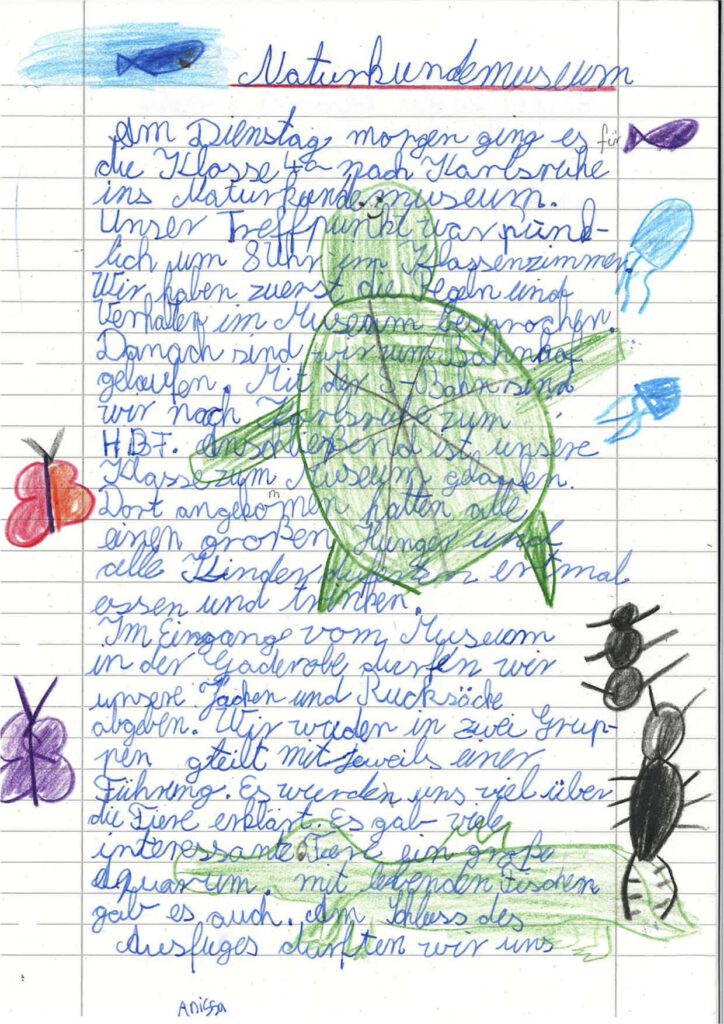 Naturkundemuseum
Am Dienstag morgen ging es für
die Klasse 4a nach Karlsruhe
ins Naturkundemuseum.
Unser Treffpunkt war pünd-
lich um 8 Uhr im Klassenzimmer.
Wir haben zuerst die Regeln und
Verhalten im Museum besprochen.
Danach sind wir zum Bahnhof
gelaufen. Mit der S-Bahn sind
wir nach Karlsruhe zum
HBF. Anschließend ist unsere
Klasse zum Museum gelaufen.
Dort angekommen hatten alle
einen großen Hunger und
alle Kinder essen und trinken.
Im Eingang vom Museum
in der Gaderobe durfen wir
unsere Jacken und Rucksäcke
abgeben. Wir wuden in zwei Grup-
pen gteilt mit jeweils einer
Führung. Es wurden uns viel über
die Tiere erklärt. Es gab viele
interessante Tiere ein große
Aquarum. mit lebenden Fischen
gab es auch. Am Schluss des
Ausfuges durften wir uns
Anissa